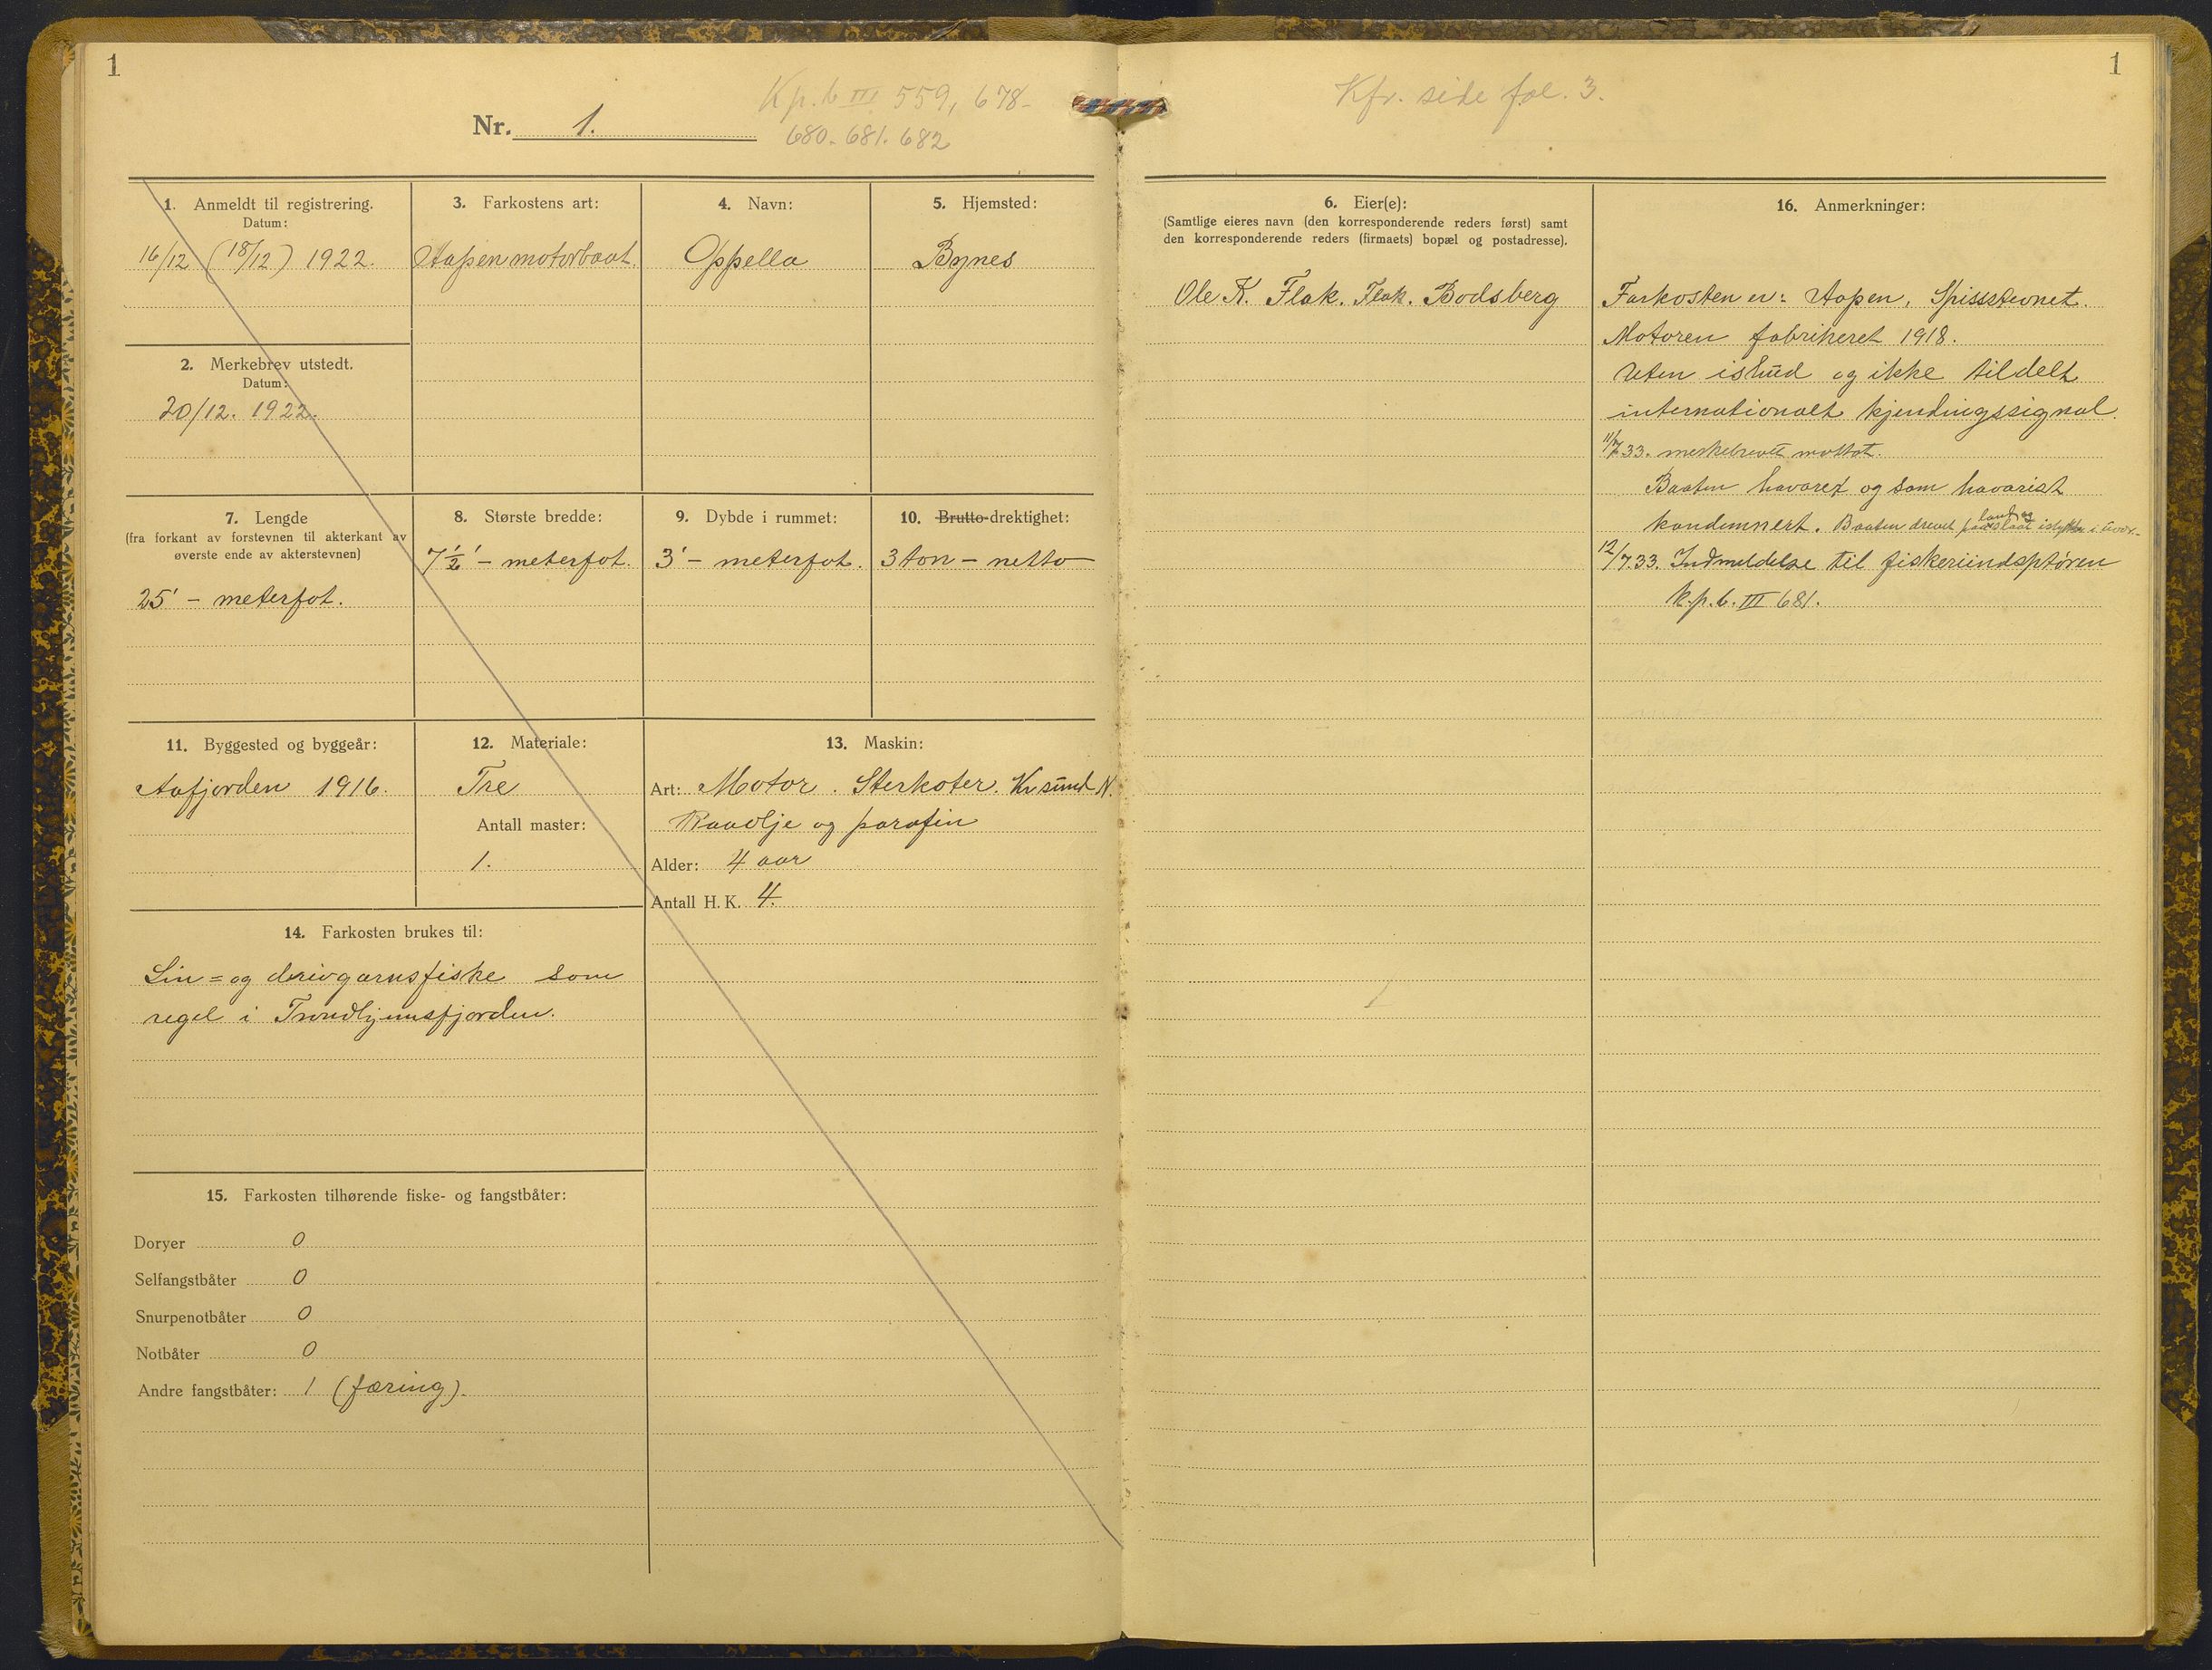 1
Kp. b III 559, 678-
Nr. 1.
680. 681. 682
1. Anmeldt til registrering.
Datum:
16/12 (18/12) 1922.
2. Merkebrev utstedt.
Datum:
20/12. 1922.
3. Farkostens art:
Aapen motorbaat.
4. Navn:
Oppella
5. Hjemsted:
Bynes
7. Lengde
(fra forkant av forstevnen til akterkant av
øverste ende av akterstevnen)
25' - meterfot.
8. Største bredde:
7 1/2' - meterfot.
9. Dybde i rummet:
3' - meterfot.
10. Brutto-drektighet:
3 ton - netto
11. Byggested og byggeår:
Aafjorden 1916.
12. Materiale:
Tre
Antall master:
1.
13. Maskin:
Art: Motor. Sterkoter. Kr sund N.
Raaolje og parafin
Alder: 4 aar
Antall H.K. 4.
14. Farkosten brukes til:
Lin= og drivgarnsfiske som
regel i Trondhjemsfjorden.
15. Farkosten tilhørende fiske- og fangstbåter:
Doryer 0
Selfangstbåter 0
Snurpenotbåter 0
Notbåter 0
Andre fangstbåter: 1 (færing).
Kfr. side fol. 3.
1
6. Eier(e):
(Samtlige eieres navn (den korresponderende reders først) samt
den korresponderende reders (firmaets) bopæl og postadresse).
Ole K. Flak. Flak. Bodsberg
16. Anmerkninger:
Farkosten er: Aapen. Spissstevnet.
Motoren fabrikeret 1918.
Uten ishud og ikke tildelt
internationalt kjendingssignal.
11/7 33. merkebrevet mottat.
Baaten havaret og som havarist
kondemnert. Baaten drevet paa land og slaat istykker i
12/7.33. Indmeldelse til fiskeriindsptøren
k.p.b. III 681.